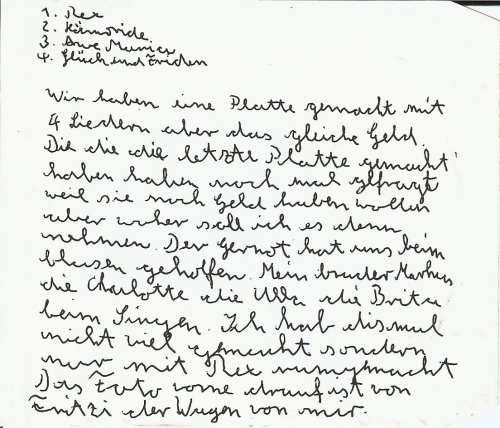 1. Rex
2. Kirmoride
3. Ave Maria
4. Glück und Friden
Wir haben eine Platte gemacht mit
4 Liedern aber das gleiche Geld.
Die die die letzte Platte gemacht
haben haben noch mal gfragt
weil sie noch Geld haben wollen
aber woher soll ich es denn
nehmen. Der Gernot hat uns beim
blasen geholfen. Mein bruder Markus
die Charlotte die Ulla die Brita
beim Singen. Ich hab dismal
nicht viel gemacht sondern
nur mit Rex rumgmacht
Das Foto vorne drauf ist von
Fritzi der Wagen von mir.